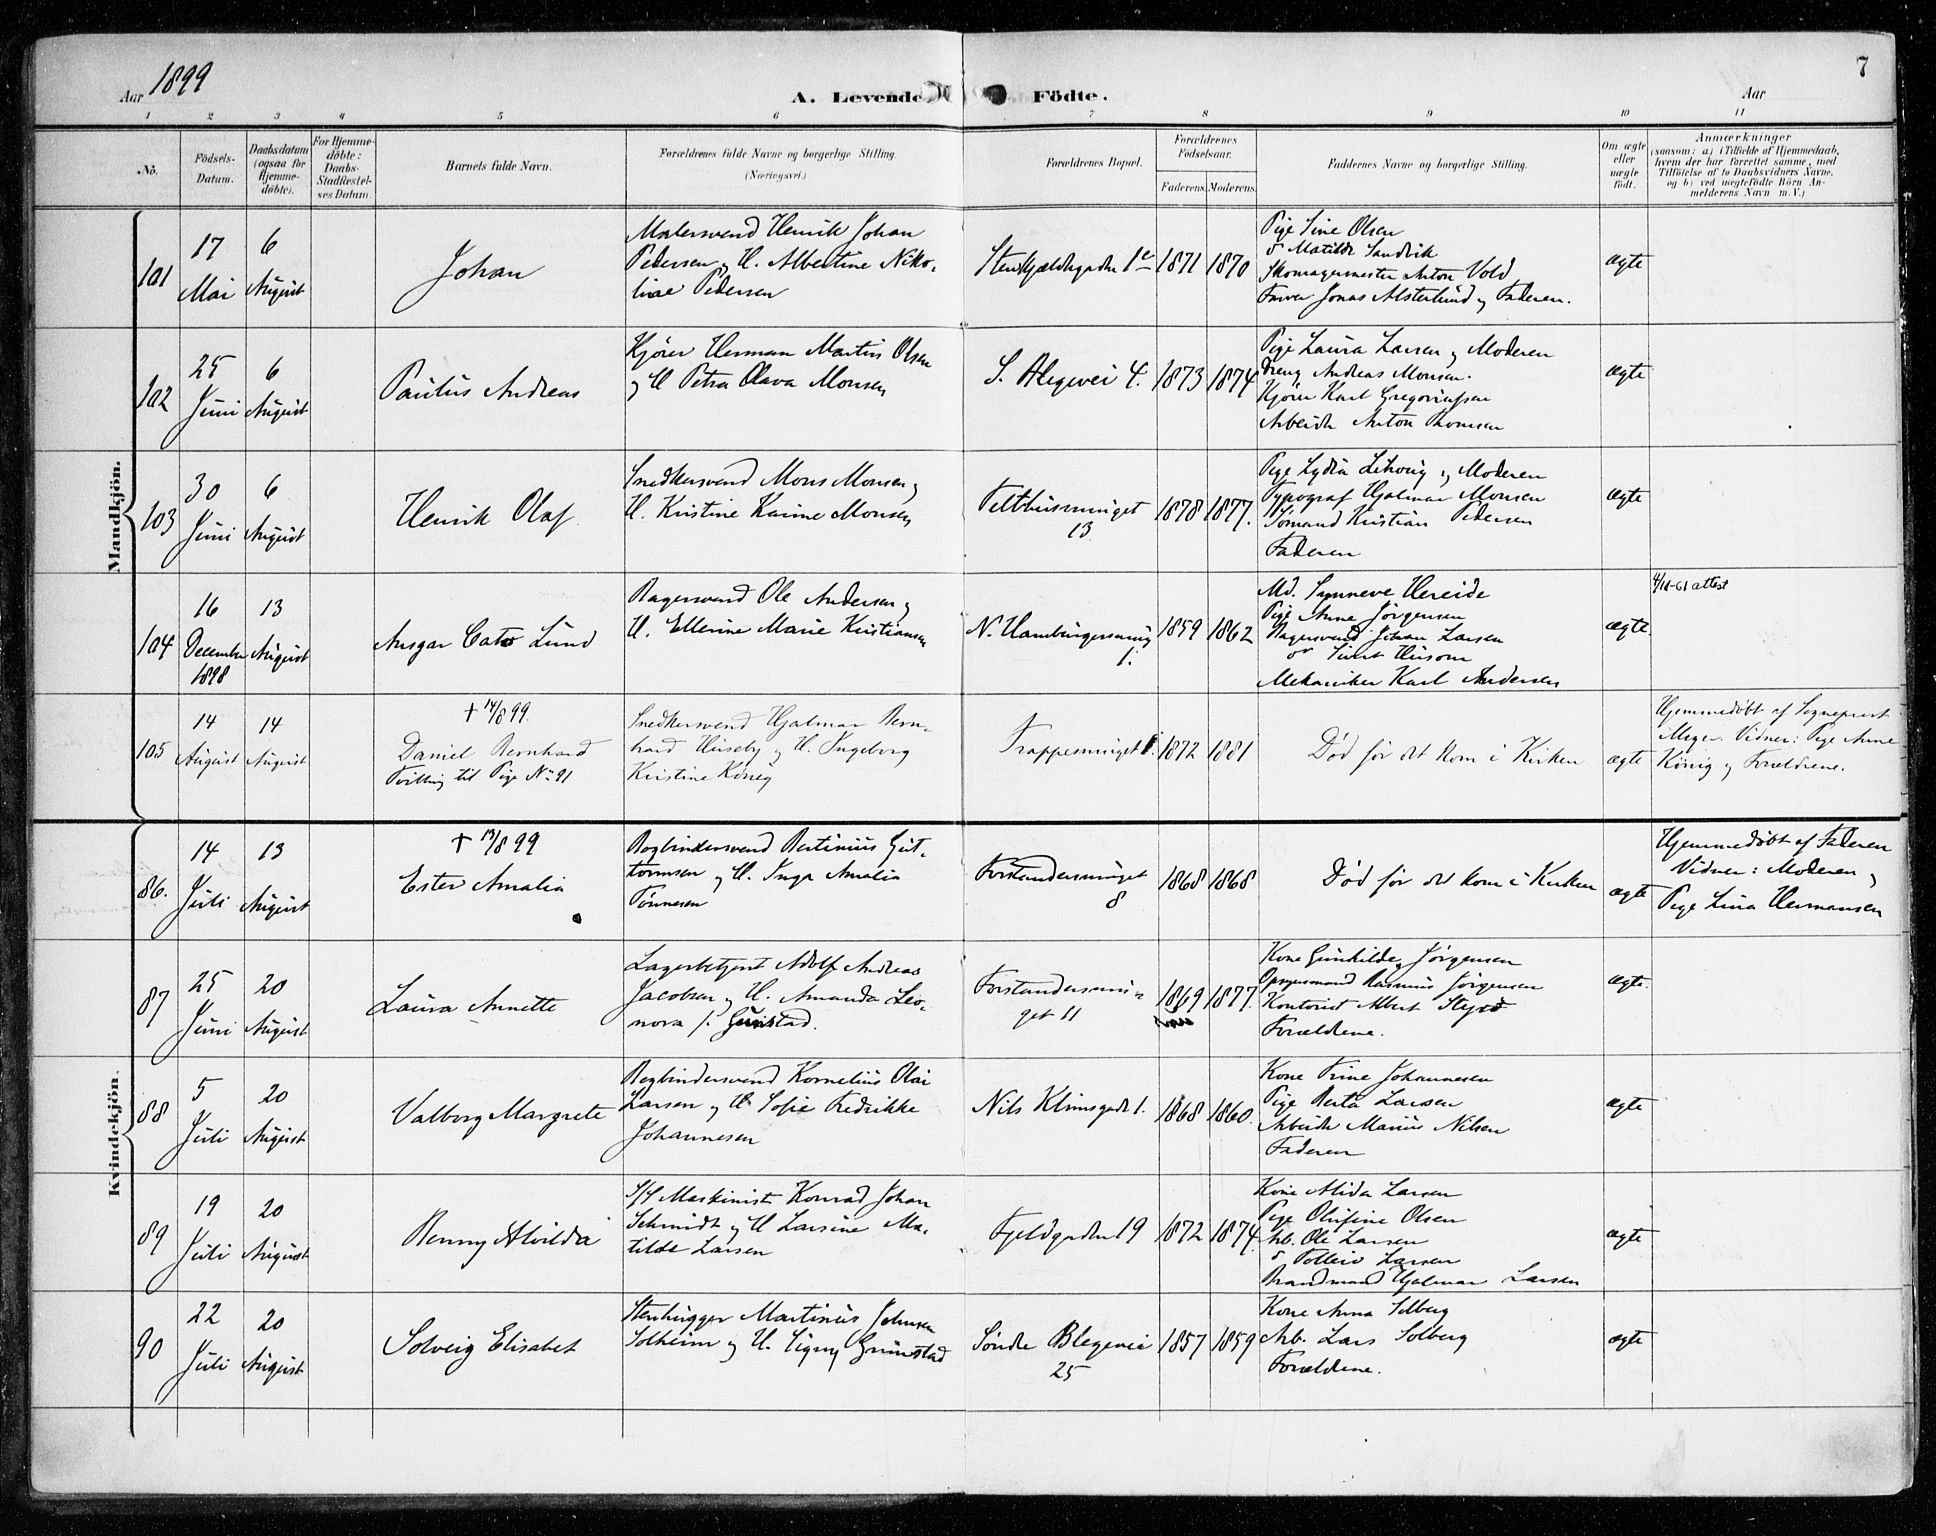 7
Aar 1899
A. Levende Födte.
Aar
1 2 3 4 5 6 7 8 9 10 11
No.
Födsels-
Datum.
Daabsdatum
(ogsaa for
Hjemme-
döbte).
For Hjemme-
döbte:
Daabs-
Stadfæstel-
ses Datum.
Barnets fulde Navn.
Forældrenes fulde Navne og borgerlige Stilling
(Næringsvei.)
Forældrenes Bopæl.
Forældrenes
Födselsaar.
Faderens. Moderens.
Faddernes Navne og borgerlige Stilling.
Om ægte
eller
uægte
födt.
Anmærkninger
(saasom: a) i Tilfælde af Hjemmedaab,
hvem der har forrettet samme, med
Tilföielse af to Daabsvidners Navne,
og b) ved uægtefödte Börn An-
melderens Navn m. V.)
Mandkjön.
101
17
Mai
6
August
Johan
Malersvend Henrik Johan
Pedersen og H. Albertine Niko-
line Pedersen
1871 1870
Pige Sine Olsen
Matilde Sandvik
Skomagermester Anton Vold
Farver Jonas Alsterlund og Faderen.
ægte
102
25
Juni
6
August
Paulus Andreas
Kjører Herman Martin Olsen
og H Petra Olava Monsen
S. Blegevei 4.
1873 1874
Pige Laura Larsen og Moderen
Dreng Andreas Monsen.
Kjører Karl Gregoriussen
Arbeider Anton Thomsen
ægte
103
30
Juni
6
August
Henrik Olaf
Snedkersvend Mons Monsen og
H. Kristine Karine Monsen
Felthusmuget
13.
1878 1877.
Pige Lydia og Moderen
Typograf Hjalmar Monsen
Sømand Kristian Pedersen
Faderen
ægte
104
16
December
1898
13
August
Ansgar Cato Lund
Bagersvend Ole Andersen og
H. Ellerine Marie Kristiansen
N. Hamburgersmug
1.
1859 1862
Md. Synneve Hereide
Pige Anne Jørgensen
Bagersvend Johan Larsen
Husom
Mekaniker Karl Andersen
ægte.
4/10-61 attest
105
14
August
14
August
† 14/8 99.
Daniel Bernhard
Tvilling til Pige No 91
Snedkersvend Hjalmar Bern-
hard Huseby og H. Ingeborg
Kristine König
Trappesmuget
1872 1881
Død før det kom i Kirken
ægte
Hjemmedøbt af Sogneprest
Meyer. Vidner: Pige Anne
König og Forældrene.
Kvindekjön.
86.
14
Juli
13
August
† 13/8 99
Ester Amalia
Bogbindersvend Bertinius Gut-
tormsen og H. Inga Amalia
Tönnesen
Forstandersmuget
8
1868 1868
Død før det kom i Kirken
ægte
Hjemmedøbt af Faderen
Vidner: Moderen og
Pige Lina Hermansen
87
25
Juni
20
August
Laura Annette
Lagerbetjent Adolf Andreas
Jacobsen og H. Amanda Leo-
nora f. Grimstad.
Forstandersmu-
get 11
1869 1877.
Kone Gunhilde Jörgensen
Opsynsmand Rasmus Jörgensen
Kontorist Albert
Forældrene.
ægte.
88
5
Juli
20
August
Valborg Margrete
Bogbindersvend Kornelius Olai
Larsen og H Sofie Fredrikke
Johannesen
Nils Klimsgade 1.
1868 1860.
Kone Trine Johannesen
Pige Berta Larsen
Arbeider Marius Nilsen
Faderen
ægte
89
19
Juli
20
August
Benny Alvilda
S/S Maskinist Konrad Johan
Schmidt og H Larsine Ma-
tilde Larsen
Fjeldgaden 19
1872 1874.
Kone Alida Larsen
Pige Olufine Olsen
Arb. Ole Larsen
Tolleiv Larsen
Brandmand Hjalmar Larsen
ægte
90
22
Juli
20
August
Solveig Elisabet
Stenhugger Martinus Johnsen
Solheim og H. Signy Grimstad
Søndre Blegevei
25
1857 1859
Kone Anna Solberg
Arb. Lars Solberg
Forældrene.
ægte